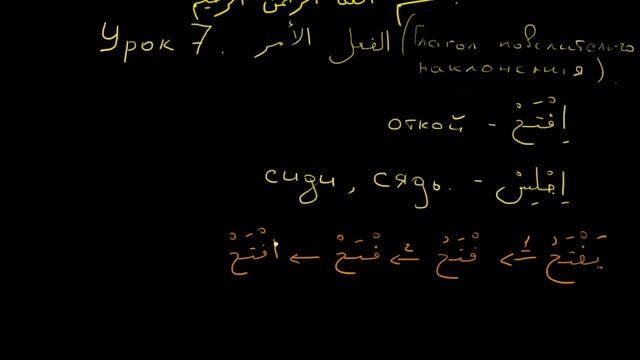 بسم الله الرحمن الرحيم
Урок 7. الفعل الأمر (Глагол повелительного
наклонения).
откой - اِفْتَحْ
сиди, сядь. - اِجْلِسْ
يَفْتَحُ ⇐1 فْتَحُ ⇐2 فْتَحْ ← افْتَحْ